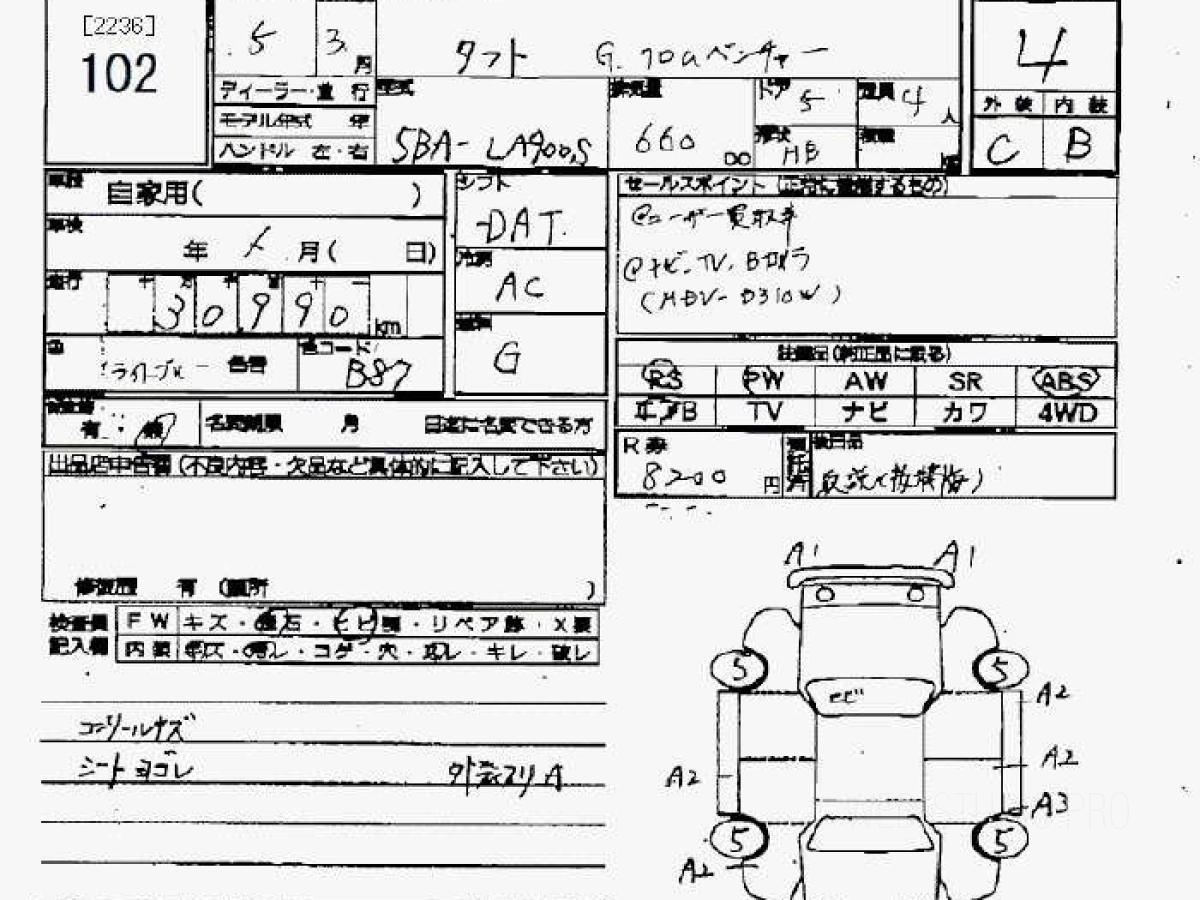 [2236]
102
5 3 月
タフト G. クロムベンチャー
4
ディーラー・並 行
モデル年式 年
ハンドル 左・右
型式
5BA- LA900S
排気量
660 cc
ドア 5
定員 4 人
形状 HB
積載 kg
外装 内装
C B
車歴 自家用( )
車検 年 月( 日)
走行 十 万 千 百 十 一
30990 km
色 色替
色コード B87
シフト
DAT
冷房
AC
燃料
G
セールスポイント (正常に機能するもの)
@ユーザー買取車
@ナビ、TV、Bカメラ
(MDV-D310W)
装備品 (純正品に限る)
PS PW AW SR ABS
エアB TV ナビ カワ 4WD
有・無
名変期限 月 日迄に名変できる方
R券
8200 円
後日品
取説(
出品店申告欄 (不良内容・欠品など具体的に記入して下さい)
修復歴 有 (箇所 )
検査員
記入欄
FW キズ・飛石・ヒビ・リペア跡・X要
内装 キズ・汚レ・コゲ・穴・・キレ・破レ
コンソールキズ
シート ヨゴレ
外装スリA
A1 A1
5 5
ヒビ
A2
A2 A2
A3
5 5
A2